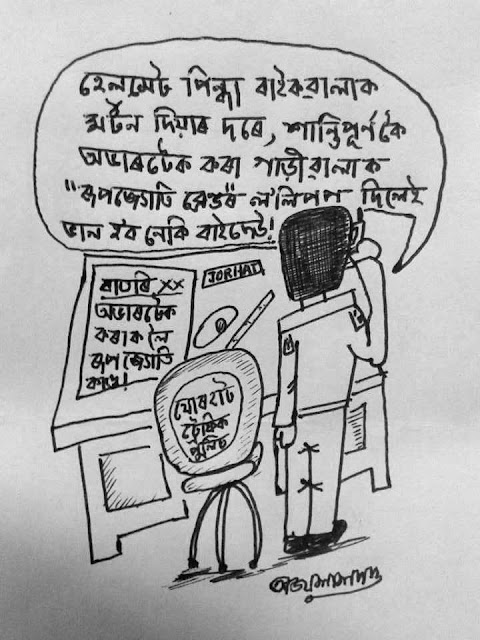 হেলমেট পিন্ধা বাইকৱালাক
মৰ্টন দিয়াৰ দৰে, শান্তিপূৰ্ণকৈ
অভাৰটেক কৰা গাড়ীৱালাক
"ৰূপজ্যোতি ব্ৰেণ্ডৰ" ল'লিপপ দিলেই
ভাল হ'ব নেকি বাইদেউ!
JORHAT
বাতৰি xx
অভাৰটেক
কৰাক লৈ
ৰূপ জ্যোতি
কাণ্ড!
যোৰহাট
ট্ৰেফিক
পুলিচ